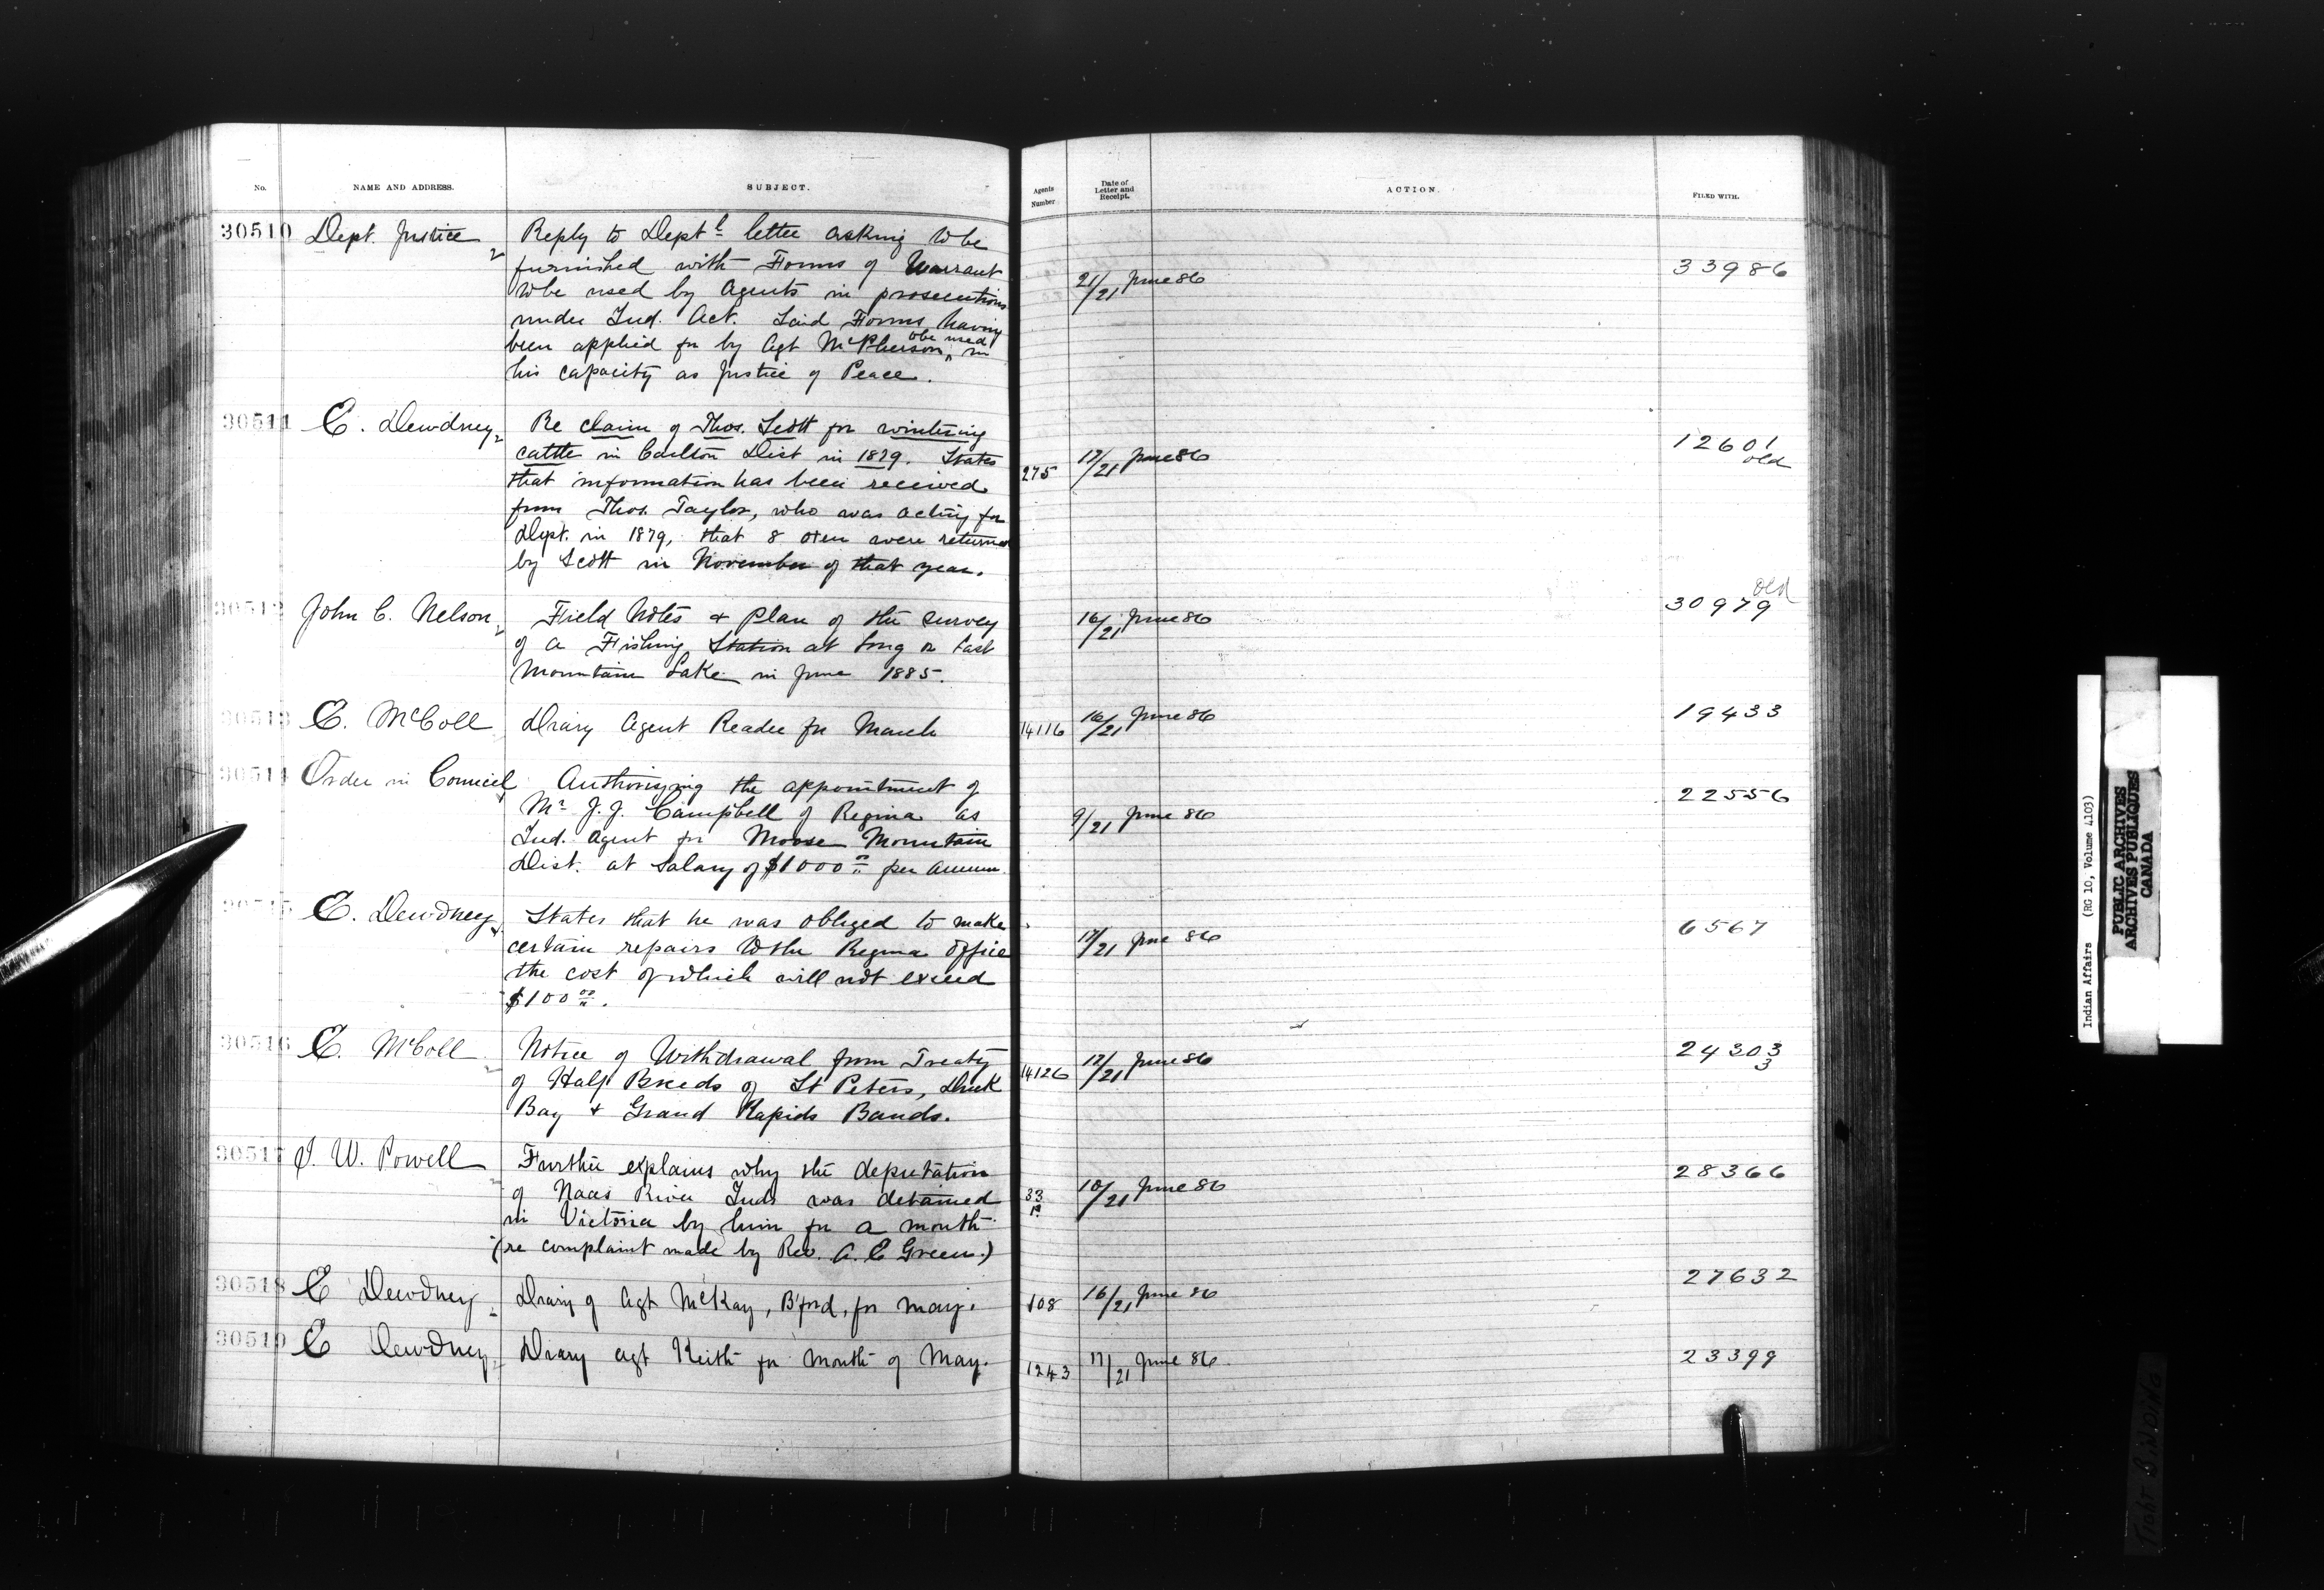 No.
NAME AND ADDRESS.
SUBJECT.
Agents Number
Date of Letter and Receipt.
ACTION.
FILED WITH.
30510 Dept. Justice
Reply to Deptl letter asking to be
furnished with Forms of Warrant
to be used by Agents in prosecutions
under Ind. Act. Said Forms having
been applied for by Agt McPherson, to be used in
his capacity as Justice of Peace.
21/21 June 86
33986
30511 E. Dewdney
Re claim of Thos. Scott for wintering
cattle in Carlton Dist in 1879. States
that information has been received
from Thos. Taylor, who was acting for
Dept. in 1879, that 8 oxen were returned
by Scott in November of that year.
275
17/21 June 86
12601
old
30512 John C. Nelson
Field Notes & Plan of the survey
of a Fishing Station at Long or Last
Mountain Lake in June 1885.
16/21 June 86
old
30979
30513 E. McColl
Diary Agent Reader for March
14116
16/21 June 86
19433
30514 Order in Council
Authorizing the appointment of
Mr J. J. Campbell of Regina as
Ind. Agent for Moose Mountain
Dist. at Salary of $1000 00 per annum.
9/21 June 86
22556
30515 E. Dewdney
States that he was obliged to make
certain repairs to the Regina Office
the cost of which will not exceed
$100 00.
17/21 June 86
6567
30516 E. McColl
Notice of Withdrawal from Treaty
of Half Breeds of St Peters, Duck
Bay & Grand Rapids Bands.
14126
17/21 June 86
24303
3
30517 I. W. Powell
Further explains why the deputation
of Naas River Inds was detained
in Victoria by him for a month
(re complaint made by Rev. A. E Green.)
33
10/21 June 86
28366
30518 E Dewdney
Diary of Agt McKay, B'ford, for May.
108
16/21 June 86
27632
30519 E Dewdney
Diary Agt Keith for month of May.
1243
17/21 June 86.
23399
Indian Affairs (RG 10, Volume 4103)
PUBLIC ARCHIVES
ARCHIVES PUBLIQUES
CANADA
TIGHT BINDING